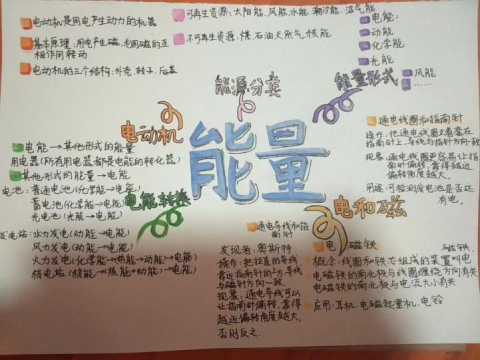 电动机是用电产生动力的机器
基本原理:用电产生磁,利用磁的互
相作用转动
电动机的三个结构:外壳、转子、后盖
可再生资源:太阳能、风能、水能、潮汐能、沼气能
不可再生资源:煤 石油 天然气 核能
能源分类
电能
动能
化学能
光能
风能
……
能量形式
电动机
能量
电能→其他形式的能量
用电器(所有用电器都是电能的转化器)
其他形式的能量→电能
电池:普通电池(化学能→电能)
蓄电池(化学能→电能)
光电池(光能→电能)
发电站:水力发电(动能→电能)
风力发电(动能→电能)
火力发电(化学能→热能→动能→电能)
核电站(核能→热能→动能→电能)
电能转换
通电线圈和指南针
操作:把通电线圈立着套在
指南针上,导线与指南针方向一致
现象:通电线圈更容易让指
南针偏转,靠得越近
偏转角度越大。
用途:可检测废电池是否还
有电。
电和磁
通电导线和指
南针
发现者:奥斯特
操作:把拉直的导线
靠近指南针的上方,导线
与磁针方向一致。
现象:通电导线可以
让指南针偏转,靠得
越近偏转角度越大,
否则反之。
电磁铁
概念:线圈和铁芯组成的装置叫电磁铁
电磁铁的南北极与线圈缠绕方向有关
电磁铁的南北极与电流大小有关
应用:耳机、电磁起重机、电铃